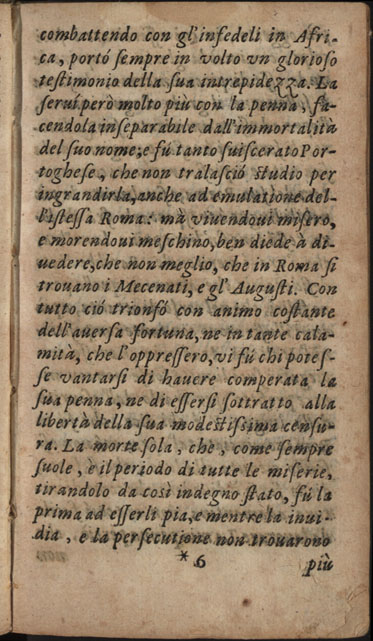 combattendo con gl'infedeli in Afri-
ca, portó ſempre in volto vn glorioſo
teſtimonio della ſua intrepidezza. La
ſerui però molto più con la penna, fa-
cendola inſeparabile dall'immortalità
del ſuo nome; e fú tanto ſuiſcerato Por-
togheſe, che non tralaſció ſtudio per
ingrandirla, anche ad emulatione del-
l'iſteſſa Roma: mà viuendoui miſero,
e morendoui meſchino, ben diede à di-
uedere, che non meglio, che in Roma ſi
trouano i Mecenati, e gl'Auguſti. Con
tutto ció trionfó con animo coſtante
dell'auerſa fortuna, ne in tante cala-
mità, che l'oppreſſero, vi fú chi poteſ-
ſe vantarſi di hauere comperata la
ſua penna, ne di eſſerſi ſottratto alla
libertà della ſua modeſtiſſima cenſu-
ra. La morte ſola, che, come ſempre
ſuole, è il periodo di tutte le miſerie,
tirandolo da così indegno ſtato, fú la
prima ad eſſerli pia, e mentre la inui-
dia, e la perſecutione non trouarono
* 6 più